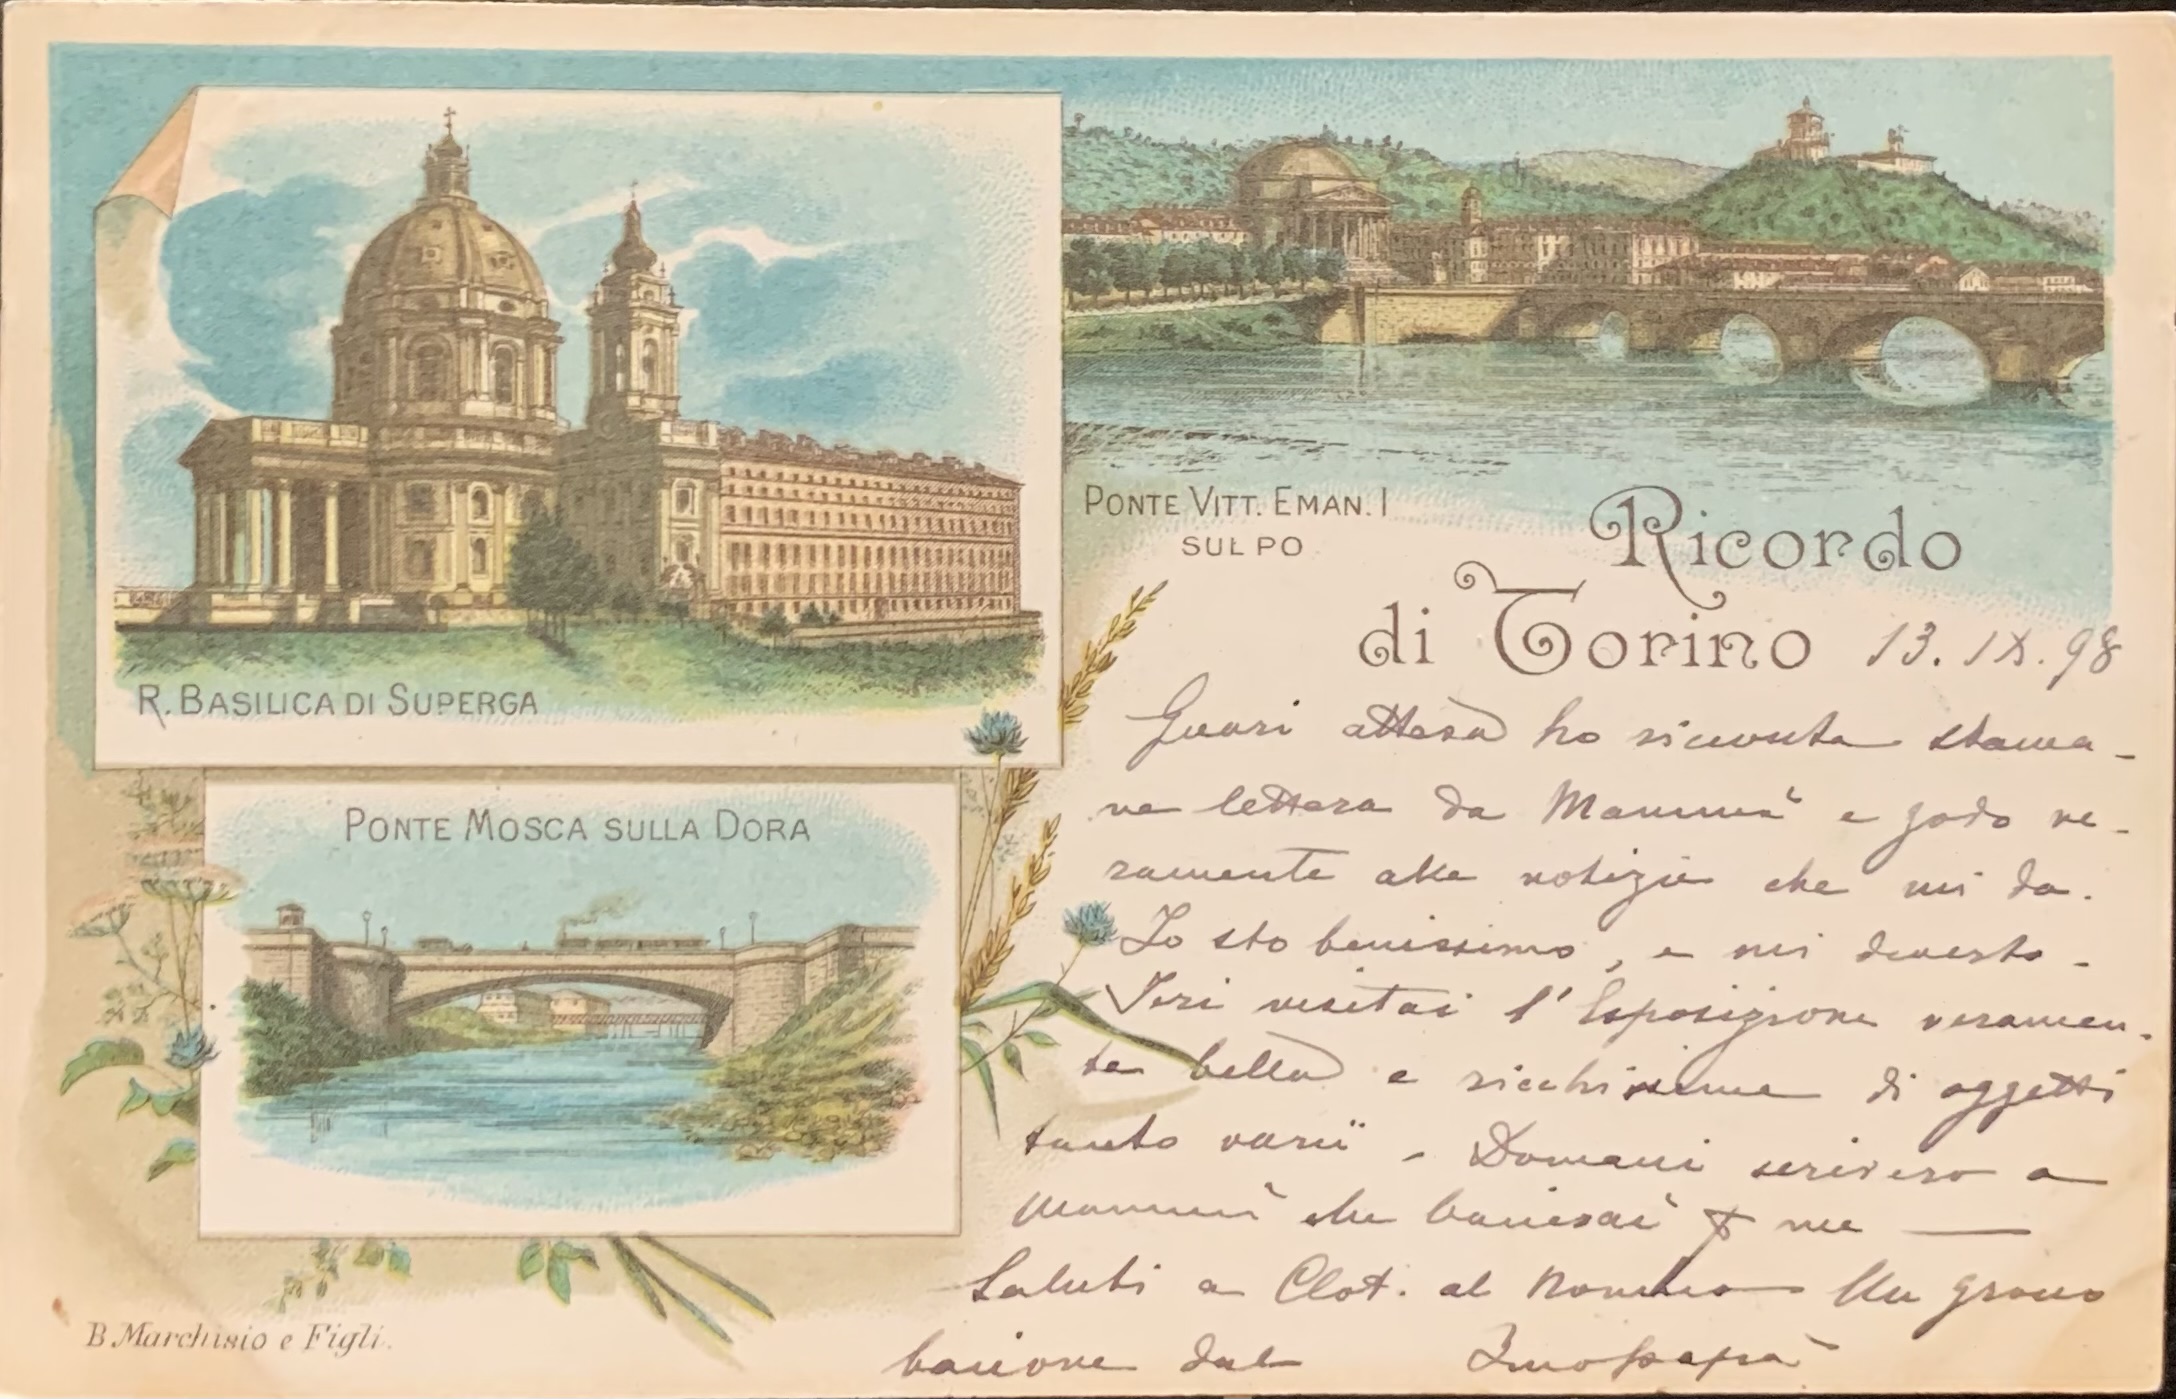 R. BASILICA DI SUPERGA
PONTE VITT. EMAN. I
SUL PO
Ricordo
di Torino 13. IX. 98
PONTE MOSCA SULLA DORA
attesa ho ricevuta stama-
ne lettera da Mammà e godo ve-
ramente alle notizie che mi da.
Io sto benissimo, e mi diverto.
Ieri visitai l'Esposizione veramen-
te bella e ricchissima di oggetti
tanto varii. Domani scrivero a
Mammà che bacierai p me —
Saluti a Clot. al Nonno Un grosso
bacione dal Tuo Papà
B. Marchisio e Figli.